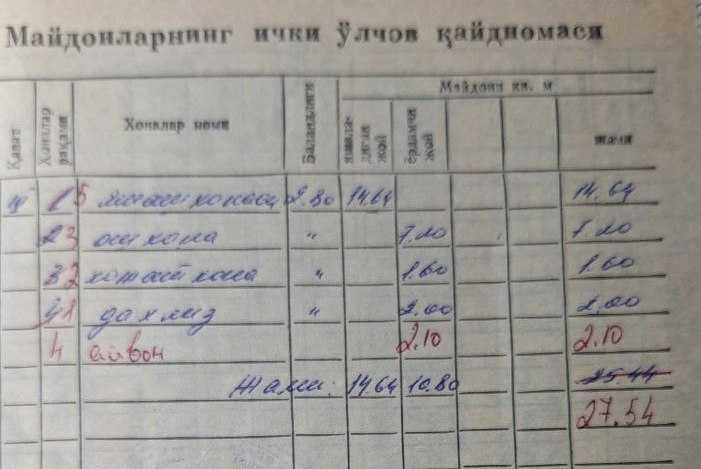 Майдонларнинг ички ўлчов қайдномаси
Қават Хоналар рақами Хоналар номи Баландлиги Майдони кв. м
яшаладиган жой ёрдамчи жой жами
1 5 яшаш хонаси 2.80 14.64 14.64
2 3 ошхона " 7.20 7.20
3 2 хожатхона " 1.60 1.60
4 1 дахлиз " 2.00 2.00
4 айвон 2.10 2.10
Жами: 14.64 10.80 25.44
27.54